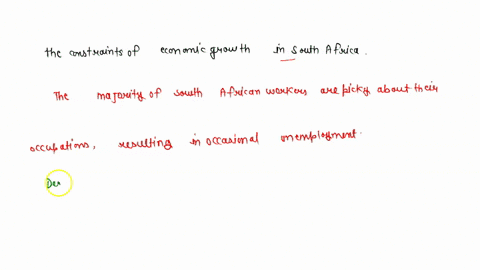 the constraints of economic growth in South Africa.
The majority of south African workers are picky about their
occupations, resulting in occasional unemployment.
Des